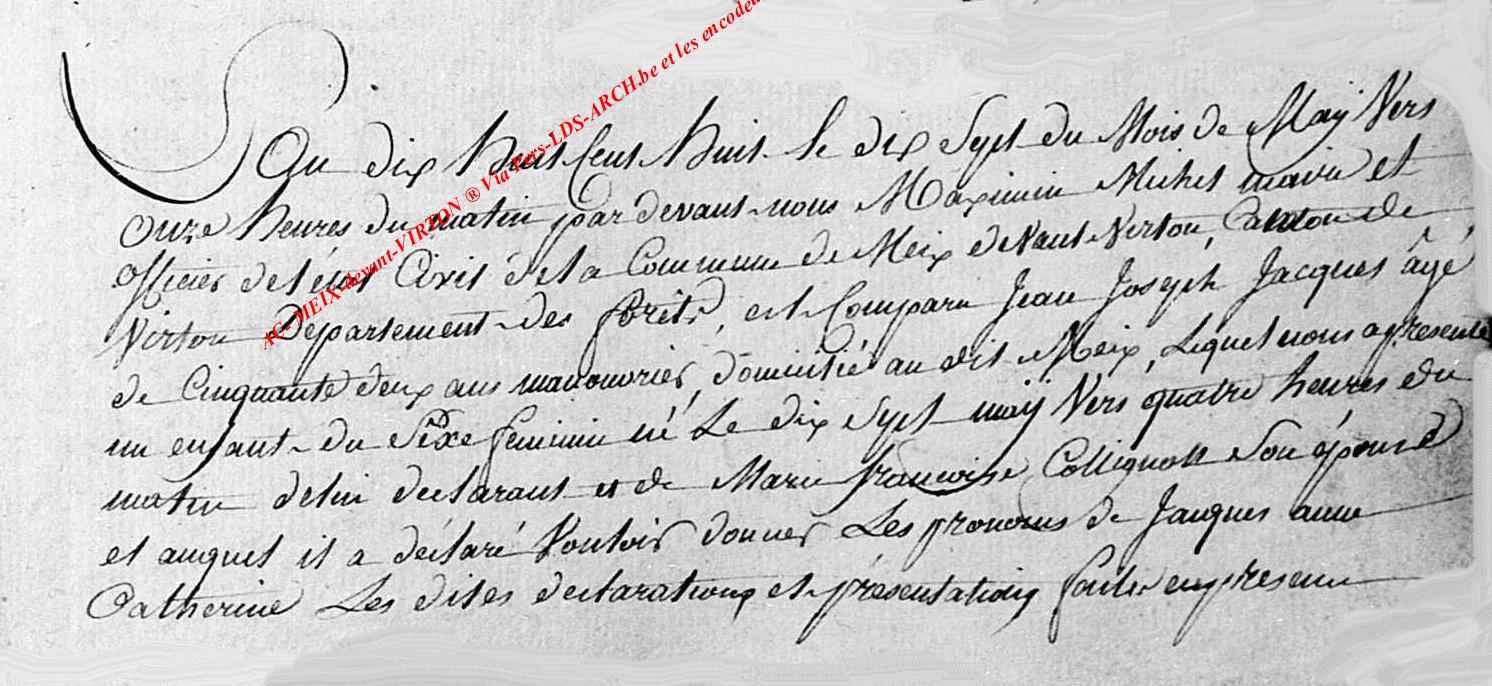 AC-MEIX-devant-VIRTON ® Via Pers-LDS-ARCH.be et les encodeu
L'an dix huit cent huit le dix Sept du Mois de Maÿ Vers
onze heures du matin par devant nous Maximin Michel maire et
officier de l'état Civil de la Commune de Meix devant Virton, Canton de
Virton Departement des forêts, est Comparu Jean Joseph Jacques âgé
de Cinquante deux ans manouvrier, domicilié au dit Meix, Lequel nous a présenté
un enfant du Sexe feminin né Le dix Sept maÿ Vers quatre heures du
matin de lui declarant et de Marie françoise Collignon Son épouse
et auquel il a déclaré Vouloir donner Les prenoms de Jacques anne
Catherine Les dites declarations et présentations faites en presence